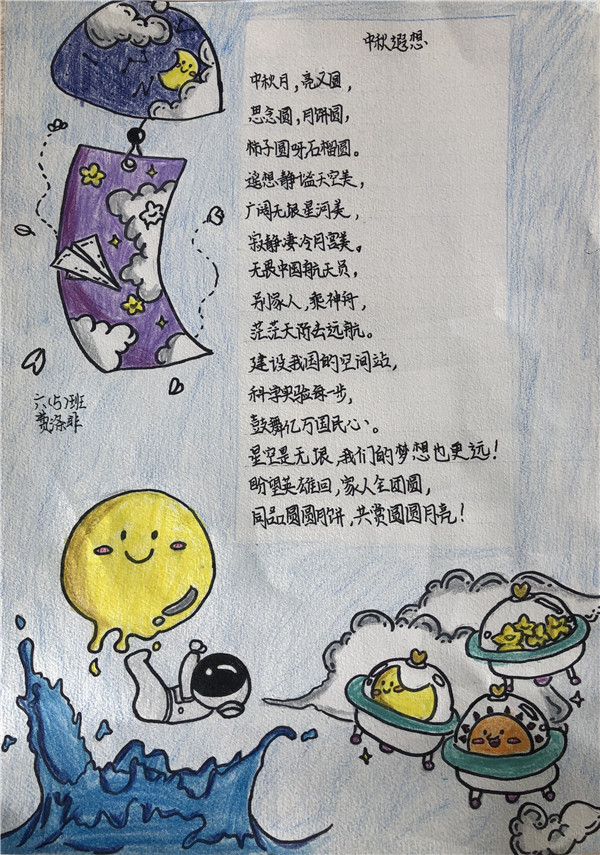 中秋遐想
中秋月,亮又圆,
思念圆,月饼圆,
柿子圆呀石榴圆。
遥想静谧天空美,
广阔无垠星河美,
寂静凄冷月宫美。
无畏中国航天员,
别家人,乘神舟,
茫茫天际去远航。
建设我国的空间站,
科学实验每一步,
鼓舞亿万国民心。
星空是无垠,我们的梦想也更远!
盼望英雄回,家人全团圆,
同品圆圆月饼,共赏圆圆月亮!
六(5)班
费涤非